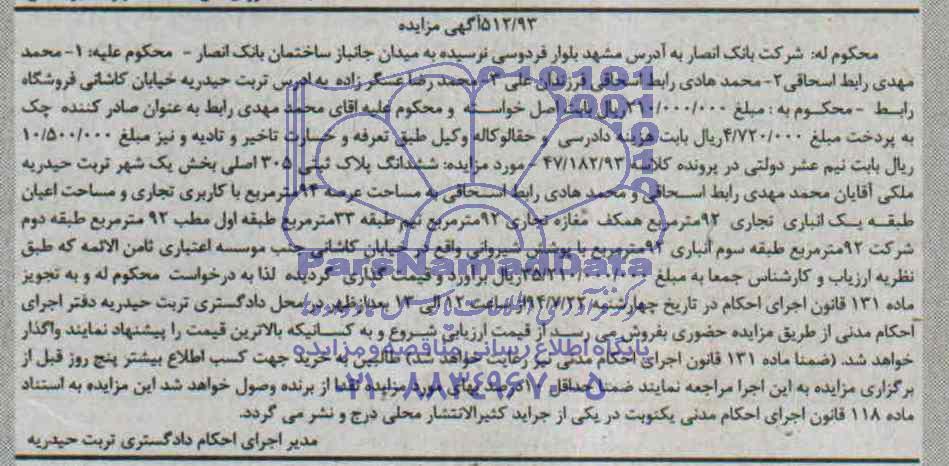 ۵۱۲/۹۳آگهی مزایده
محکوم له: شرکت بانک انصار به آدرس مشهد بلوار فردوسی نرسیده به میدان جانباز ساختمان بانک انصار - محکوم علیه: ۱- محمد
مهدی رابط اسحاقی ۲- محمد هادی رابط اسحاقی فرزندان علی ۳- محمد رضا عسگر زاده به ادرس تربت حیدریه خیابان کاشانی فروشگاه
رابط - محکوم به : مبلغ ریال بابت اصل خواسته و محکوم علیه اقای محمد مهدی رابط به عنوان صادر کننده چک
به پرداخت مبلغ ۴/۷۲۰/۰۰۰ریال بابت هزینه دادرسی و حقالوکاله وکیل طبق تعرفه و خسارت تاخیر و تادیه و نیز مبلغ ۱۰/۵۰۰/۰۰۰
ریال بابت نیم عشر دولتی در پرونده کلاسه ۴۷/۱۸۲/۹۳ - مورد مزایده: ششدانگ پلاک ثبتی ۳۰۵ اصلی بخش یک شهر تربت حیدریه
ملکی آقایان محمد مهدی رابط اسحاقی و محمد هادی رابط اسحاقی به مساحت عرصه ۹۴مترمربع با کاربری تجاری و مساحت اعیان
طبقه یک انباری تجاری ۹۲مترمربع همکف مغازه تجاری ۹۲مترمربع نیم طبقه ۳۳مترمربع طبقه اول مطب ۹۲ مترمربع طبقه دوم
شرکت ۹۲مترمربع طبقه سوم انباری ۹۲مترمربع با پوشش شیروانی واقع در خیابان کاشانی جنب موسسه اعتباری ثامن الائمه که طبق
نظریه ارزیاب و کارشناس جمعا به مبلغ ریال برآورد و قیمت گذاری گردیده لذا به درخواست محکوم له و به تجویز
ماده ۱۳۱ قانون اجرای احکام در تاریخ چهارشنبه ۹۴/۷/۲۲از ساعت ۱۲ الی ۱۳ بعدازظهر در محل دادگستری تربت حیدریه دفتر اجرای
احکام مدنی از طریق مزایده حضوری بفروش می رسد از قیمت ارزیابی شروع و به کسانیکه بالاترین قیمت را پیشنهاد نمایند واگذار
خواهد شد. (ضمنا ماده ۱۳۱ قانون اجرای احکام مدنی نیز رعایت خواهد شد) طالبین به خرید جهت کسب اطلاع بیشتر پنج روز قبل از
برگزاری مزایده به این اجرا مراجعه نمایند ضمنا حداقل ۱۰درصد بهای مورد مزایده نقدا از برنده وصول خواهد شد این مزایده به استناد
ماده ۱۱۸ قانون اجرای احکام مدنی یکنوبت در یکی از جراید کثیرالانتشار محلی درج و نشر می گردد.
مدیر اجرای احکام دادگستری تربت حیدریه
ParsNamadData
پایگاه اطلاع رسانی مناقصه و مزایده
۰۲۱-۸۸۳۴۹۶۷۰-۵